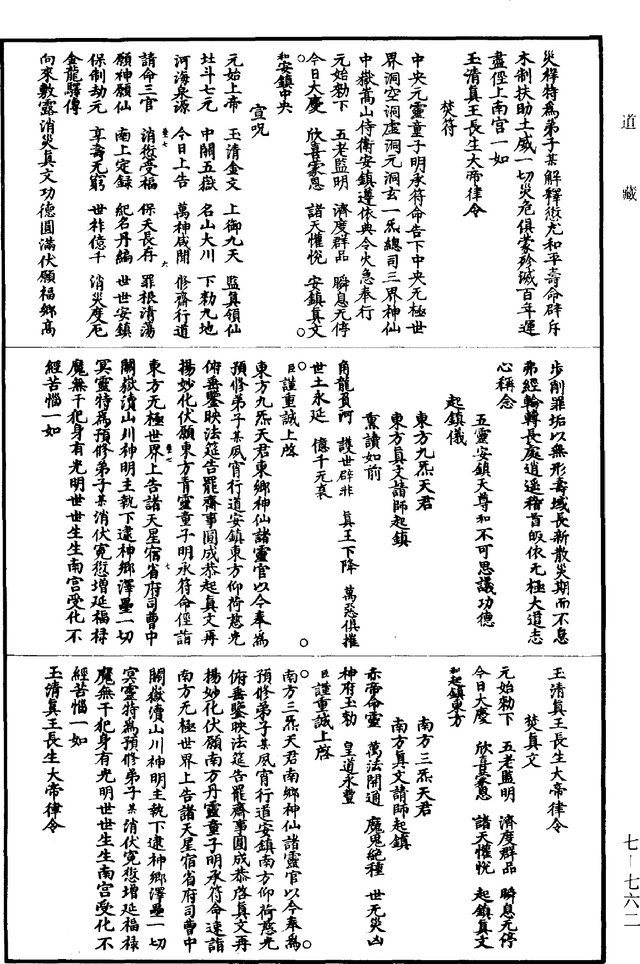 道藏
災橫特爲弟子某解釋愆尤和平壽命辟斥
木制扶助土威一切災危俱蒙殄滅百年運
盡徑上南宮一如
玉清眞王長生大帝律令
焚符
中央元靈童子明承符命告下中央无極世
界洞空洞虛洞元洞玄一炁總司三界神仙
中嶽嵩山侍衛安鎮遵依典令火急奉行
元始勑下 五老監明 濟度群品 瞬息无停
今日大慶 欣喜蒙恩 諸天懽悅 安鎮眞文
和安鎮中央
宣呪
元始上帝 玉清金文 上御九天 監眞領仙
北斗七元 中闢五嶽 名山大川 下勑九地
河海泉源 今日上告 萬神咸聞 修齋行道
請命三官 消愆受福 保天長存 罪根清蕩
願神願仙 南上定錄 紀名丹編 世世安鎮
保制劫元 享壽无窮 世祚億千 消災度厄
金龍驛傳
向來敷露消災眞文功德圓滿伏願福鄉高
步削罪垢以無形壽域長新散災期而不息
弗經輪轉長處逍遙稽首皈依无極大道志
心稱念
五靈安鎮天尊和不可思議功德
起鎮儀
東方九炁天君
東方眞文請師起鎮
熏讀如前
角龍負河 護世辟非 眞王下降 萬惡俱摧
世土永延 億千元衰
臣謹重誠上啓
東方九炁天君東鄉神仙諸靈官以今奉爲
預修弟子某夙宵行道安鎮東方仰荷慈光
俯垂鑒映法筵告罷齋事圓成恭起眞文再
揚妙化伏願東方青靈童子明承符命徑詣
東方无極世界上告諸天星宿省府司曹中
關嶽瀆山川神明主執下逮神鄉澤壘一切
冥靈特爲預修弟子某消伏寃愆增延福祿
魔無干犯身有光明世世生生南宮受化不
經苦惱一如
玉清眞王長生大帝律令
焚眞文
元始勑下 五老監明 濟度群品 瞬息元停
今日大慶 欣喜蒙恩 諸天懽悅 起鎮眞文
和起鎮東方
南方三炁天君
南方眞文請師起鎮
赤帝命靈 萬法開通 魔鬼絶種 世无災凶
神府玉勑 皇道永豐
臣謹重誠上啓
南方三炁天君南鄉神仙諸靈官以今奉爲
預修弟子某夙宵行道安鎮南方仰荷慈光
俯垂鑒映法筵告罷齋事圓成恭啓眞文再
揚妙化伏願南方丹靈童子明承符命速詣
南方无極世界上告諸天星宿省府司曹中
關嶽瀆山川神明主執下逮神鄉澤壘一切
冥靈特爲預修弟子某消伏寃愆增延福祿
魔無干犯身有光明世世生生南宮受化不
經苦惱一如
玉清眞王長生大帝律令
七—七六二